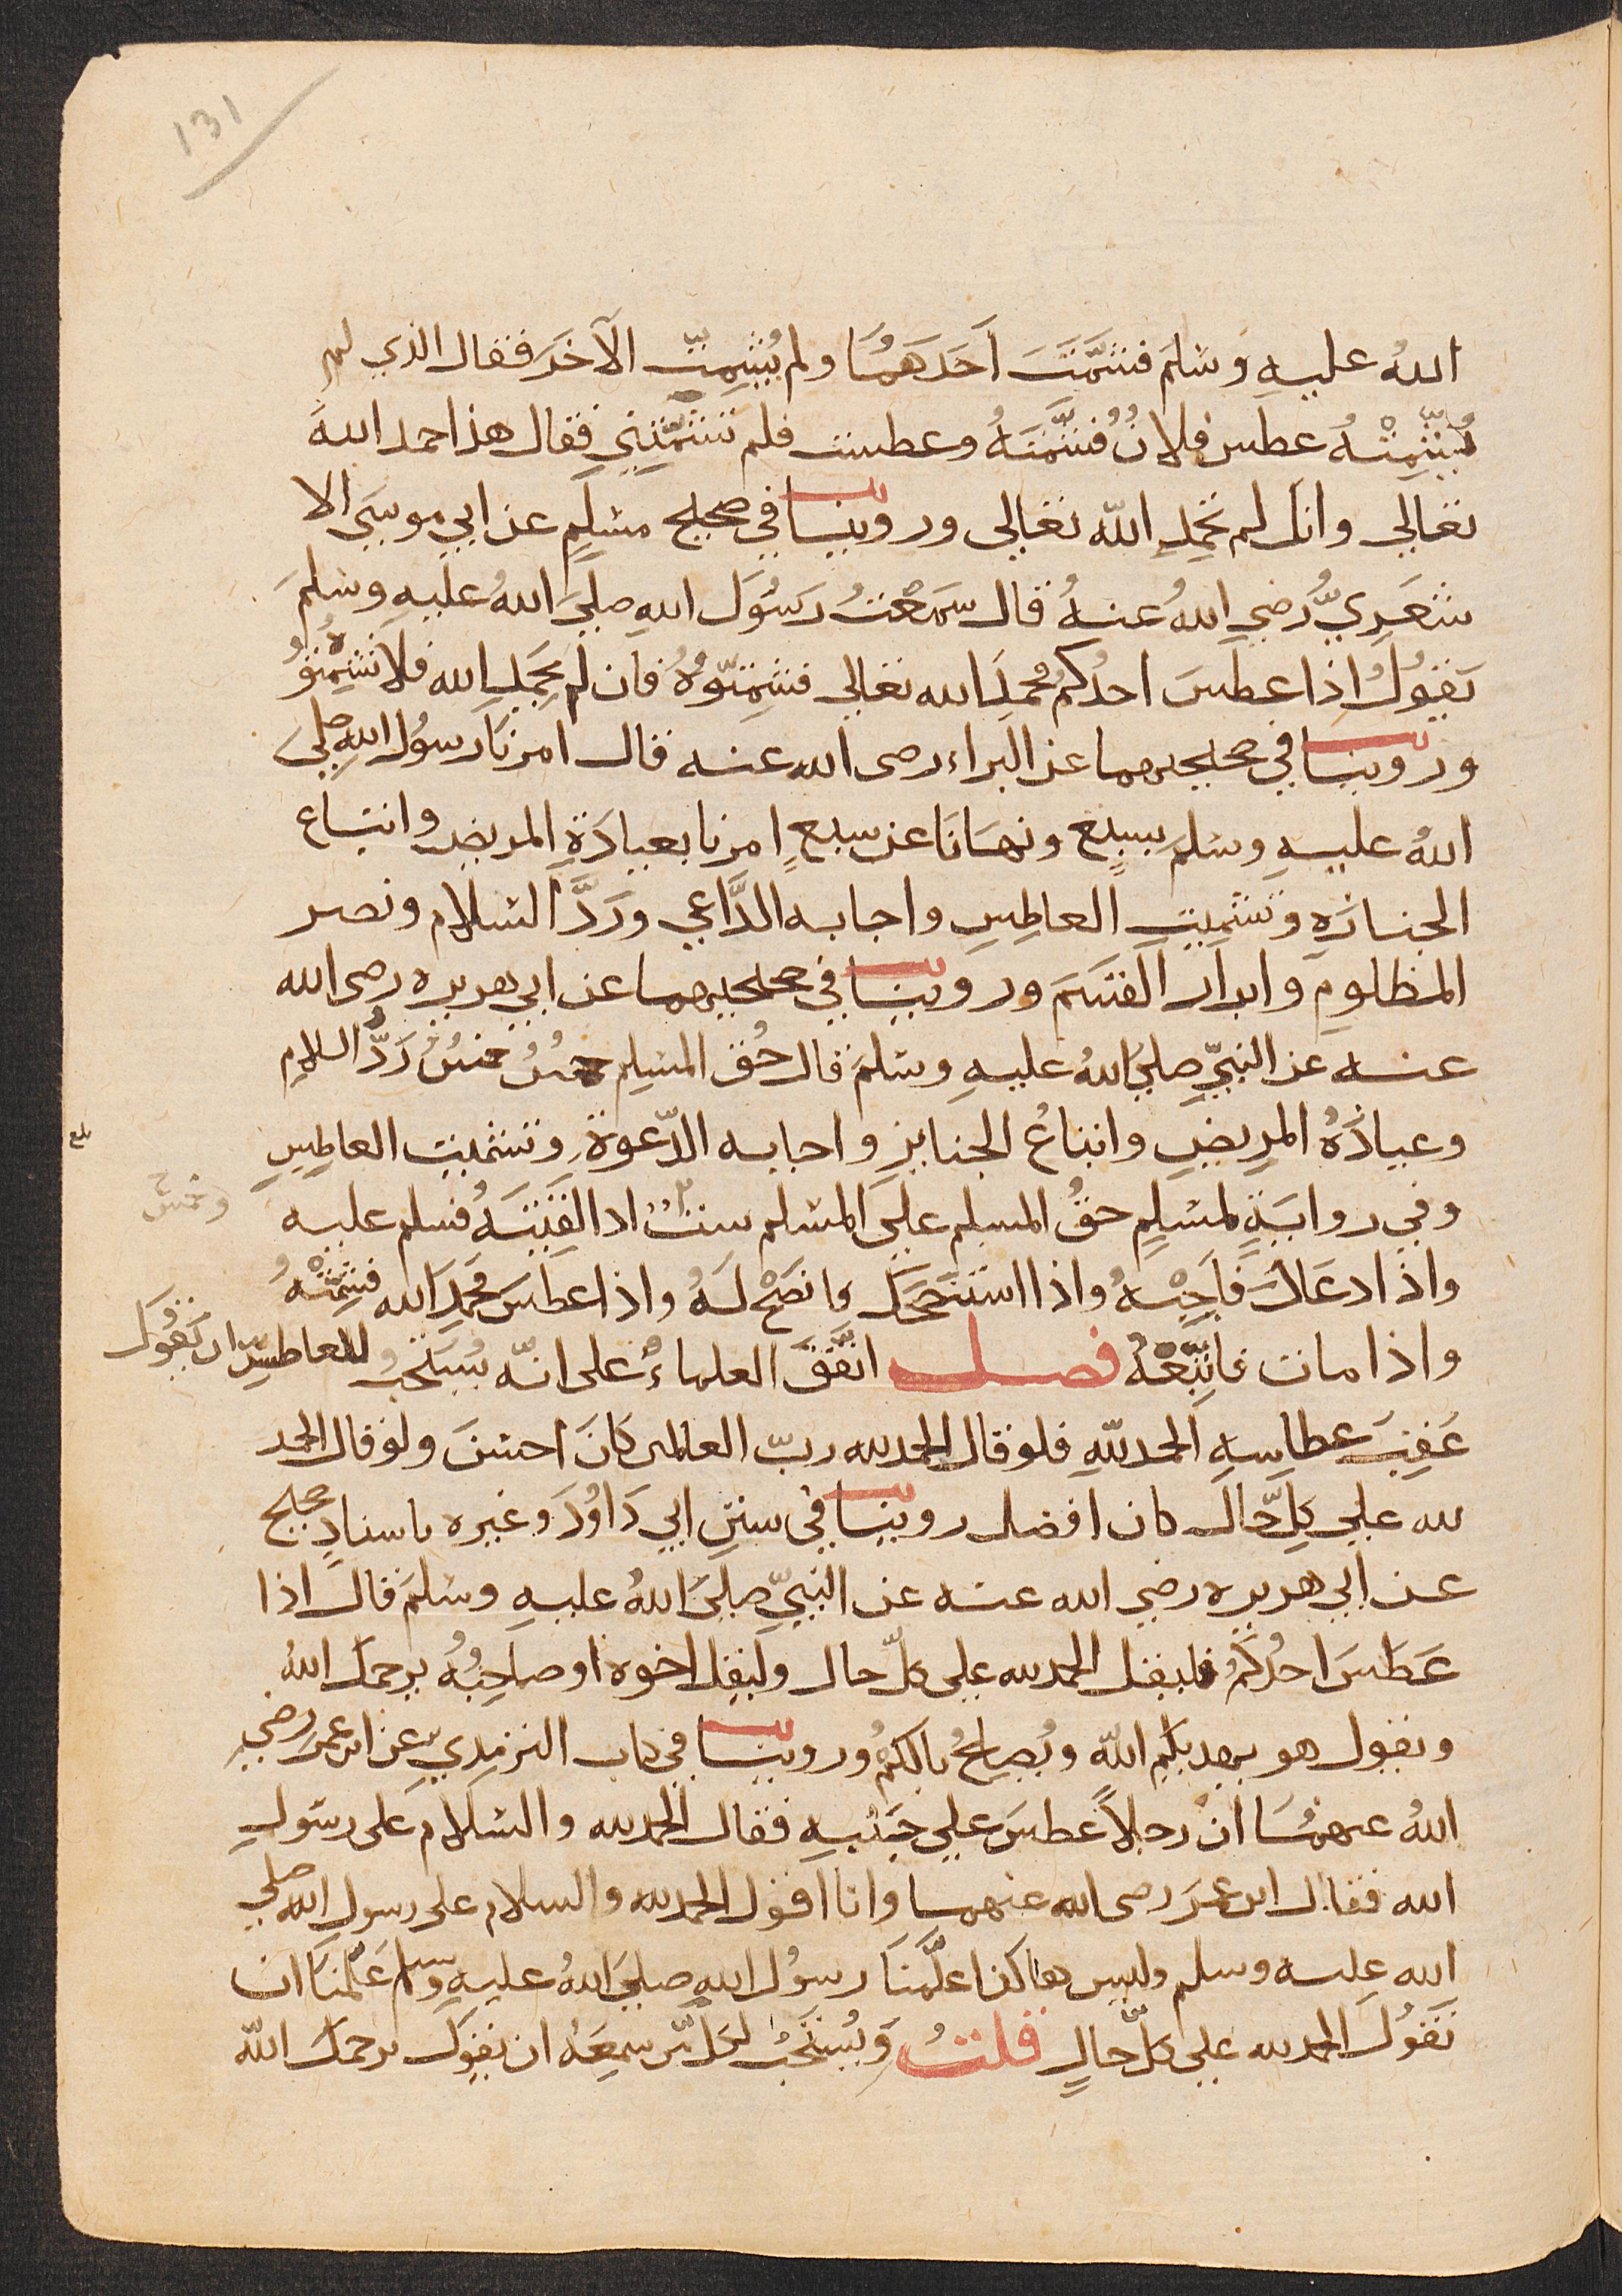 131
اللهُ عليهِ وسَلمَ فشَمَّتَ اَحَدَهمَا ولم يُشَمِّتِ الآخَرَ فقال الذي لم
يُشَمِّتْهُ عطس فلانٌ فشمَّتَهُ وعطست فلم تشمّتني فقال هذا حمد اللهَ
تعالى وانك لم تحمدِ الله تعالى وروينا في صحيح مسلِمٍ عن ابي موسَى الا
شعَرِيّ رضي اللهُ عنهُ قال سمعْتُ رسُولَ اللهِ صلىَ اللهُ عليهِ وسلمَ
يقولُ اِذا عطسَ احدُكم فحمدَ الله تعالى فشمِّتوهُ فان لم يحمدِ الله فلا تشمِّتوهُ
وروينا في صحيحيهما عن البراء رضى الله عنه قال امرنا رسُول اللهِ صلىَ
اللهُ عليهِ وسلمَ بسبعٍ ونهانَا عن سبعٍ امرنا بعيادَةِ المريض واتباع
الجنازةِ وتشميتِ العاطِسِ واجابه الدَّاعي وَرَدَّ السَّلام ونصر
المظلومِ وَابرار القسَم وروينا في صحيحيهما عن ابي هريره رضى الله
عنه عن النبيّ صلى اللهُ عليهِ وسلمَ قال حُق المسلم خمسٌ رَدُّ السلامِ
وعيادَهُ المريضِ واتباعُ الجنايز واجابه الدّعوةِ وتشميت العاطِسِ
بلغ
وفي روايةٍ لمسْلِمٍ حقُ المسلم علىَ المسْلم ستٌ اذا لقيتَهُ فسلم عليه
وخمس
واذا دعَاك فاَجِبْهُ واذا استنصَحَكَ فانصَحْ لَهُ واذا عطسَ فحَمِدَ الله فشمّتْهُ
واذا مات فاتّبعْهُ فصل اتفَقَ العلماءُ على انّه يُستحبُ للعاطسِ ان يقولَ
عَقِبَ عطاسِهِ الحمد للهِ فلو قال الحمد لله ربّ العالمين كانَ احسَنَ ولو قال الحمد
لله على كلِّ حال كان افضل روينا في سننِ ابي دَاوُدَ وغيره باسنادٍ صحيح
عن ابي هريره رضي الله عنه عن النبيّ صلىَ اللهُ عليهِ وسلمَ قال اذا
عَطسَ احدُكم فليقل الحمد لله على كلّ حال وليقل اخوه او صاحِبُهُ يرحمك اللهُ
ويقول هو يهديكم اللهُ ويُصلِحُ بالكمُ وروينا في كتاب الترمِذيّ عن ابن عمر رضي
اللهُ عنهمَا ان رجلاً عطسَ على جَنبهِ فقال الحمد لله والسَّلام على رسُولِ
الله فقال ابن عمَرَ رضى الله عنهما وانا اقول الحمد لله والسلام على رسول الله صلى
الله عليه وسلم وليس هاكذا علَّمنَا رسُول اللهِ صلىَ اللهُ عليهِ وسلم عَلّمنا ان
نَقولَ الحمد لله على كلّ حالٍ قلتُ وَيُستَحَبُ لكل من سمِعَهُ ان يقولَ يرحمك الله